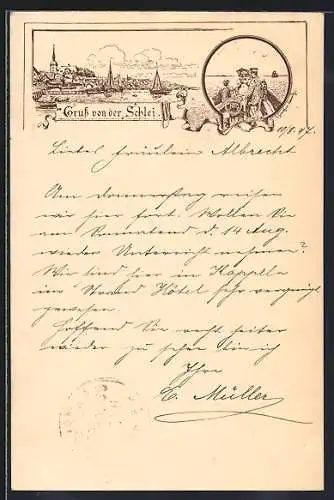 Gruß von der Schlei.
10/8. 97.
Liebes Fräulein Albrecht
Am Donnerstag reisen
wir hier fort. Wollen Sie
am Sonnabend d. 14 Aug.
wieder Unterricht nehmen?
Wir sind hier in Kappeln
im Strand Hôtel sehr vergnügt
gewesen.
Hoffend Sie recht heiter
wieder zu sehen bin ich
Ihre
E. Müller